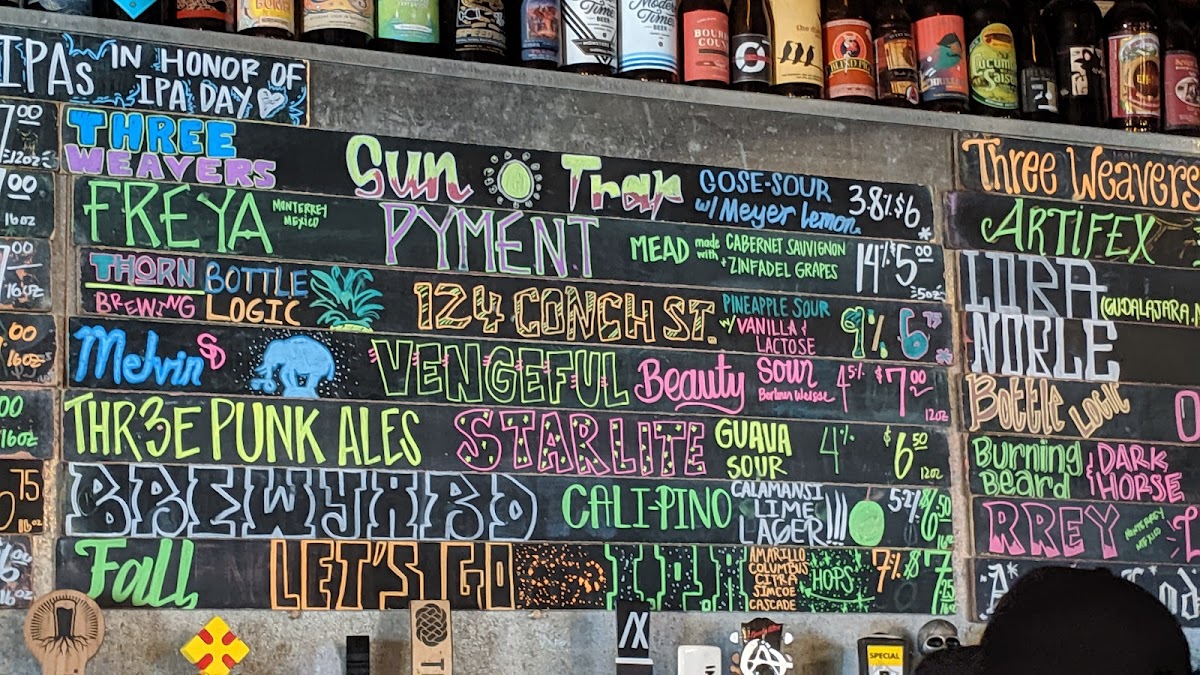 IPAs IN HONOR OF
IPA DAY
7.00
12oz
.00
16oz
.00
16oz
.00
16oz
00
16oz
75
16oz
16oz
THREE
WEAVERS
Sun Trap
GOSE-SOUR
w/ Meyer Lemon.
3.8% $6
*
FREYA
MONTERREY
MEXICO
PYMENT
MEAD
made CABERNET SAUVIGNON
with + ZINFADEL GRAPES
14% 5.00
5oz
THORN
BREWING
BOTTLE
LOGIC
124 CONCH ST.
PINEAPPLE SOUR
w/ VANILLA &
LACTOSE
9% 6.75
*
Melvin
VENGEFUL
Beauty
SOUR
Berliner Weisse
4.5% $7.00
12oz
THR3E PUNK ALES
STARLITE
GUAVA
SOUR
4% $6.50
12oz
BREWYARD
CALI-PINO
CALAMANSI
LIME
LAGER!!!
5.2% $6.50
16oz
Fall
LET'S GO
IPA
AMARILLO
COLUMBUS
CITRA
SIMCOE
CASCADE
HOPS
7% $7.25
Three Weavers
ARTIFEX
LURA
(GUDALAJARA,
NOBLE
Bottle LOGIC
Burning
Beard
& DARK
HORSE
RREY
MONTERREY
MEXICO
SPECIAL